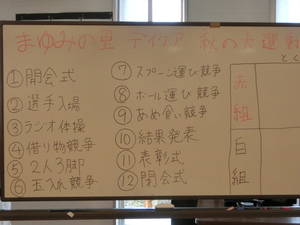 まゆみの里 デイケア 秋の大運動
①開会式
②選手入場
③ラジオ体操
④借り物競争
⑤2人3脚
⑥玉入れ競争
⑦スプーン運び競争
⑧ボール運び競争
⑨あめ食い競争
⑩結果発表
⑪表彰式
⑫閉会式
とく
赤組
白組